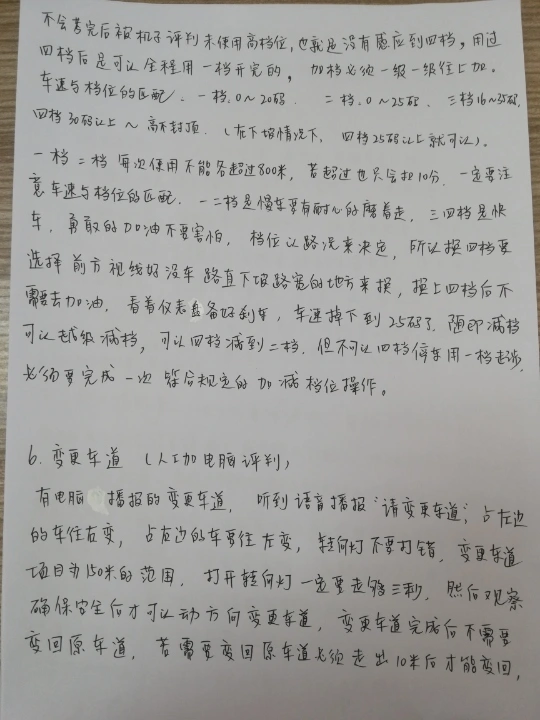 不会考完后被机子评判未使用高档位,也就是没有感应到四档,用过
四档后是可以全程用一档开完的,加档必须一级一级往上加。
车速与档位的匹配.一档.0~20码. 二档.0~25码. 三档16~35码.
四档30码以上~高不封顶.(在下坡情况下,四档25码以上就可以).
一档二档每次使用不能各超过800米,若超过也只会扣10分.一定要注
意车速与档位的匹配.一二档是慢车要有耐心的磨着走,三四档是快
车,勇敢的加油不要害怕,档位以路况来决定,所以换四档要
选择前方视线好没车路直下坡路宽的地方来换,换上四档后不
需要去加油.看着仪表盘备好刹车,车速掉下到25码了.随即减档
可以越级减档,可以四档减到二档.但不可以四档停车用一档起步,
必须要完成一次符合规定的加减档位操作。
6.变更车道(人工加电脑评判)
有电脑播报的变更车道,听到语音播报“请变更车道”,占左边
的车往右变,占右边的车要往左变,转向灯不要打错,变更车道
项目为150米的范围,打开转向灯一定要走够三秒,然后观察
确保安全后才可以动方向变更车道,变更车道完成后不需要
变回原车道,若需要变回原车道必须走出10米后才能变回,